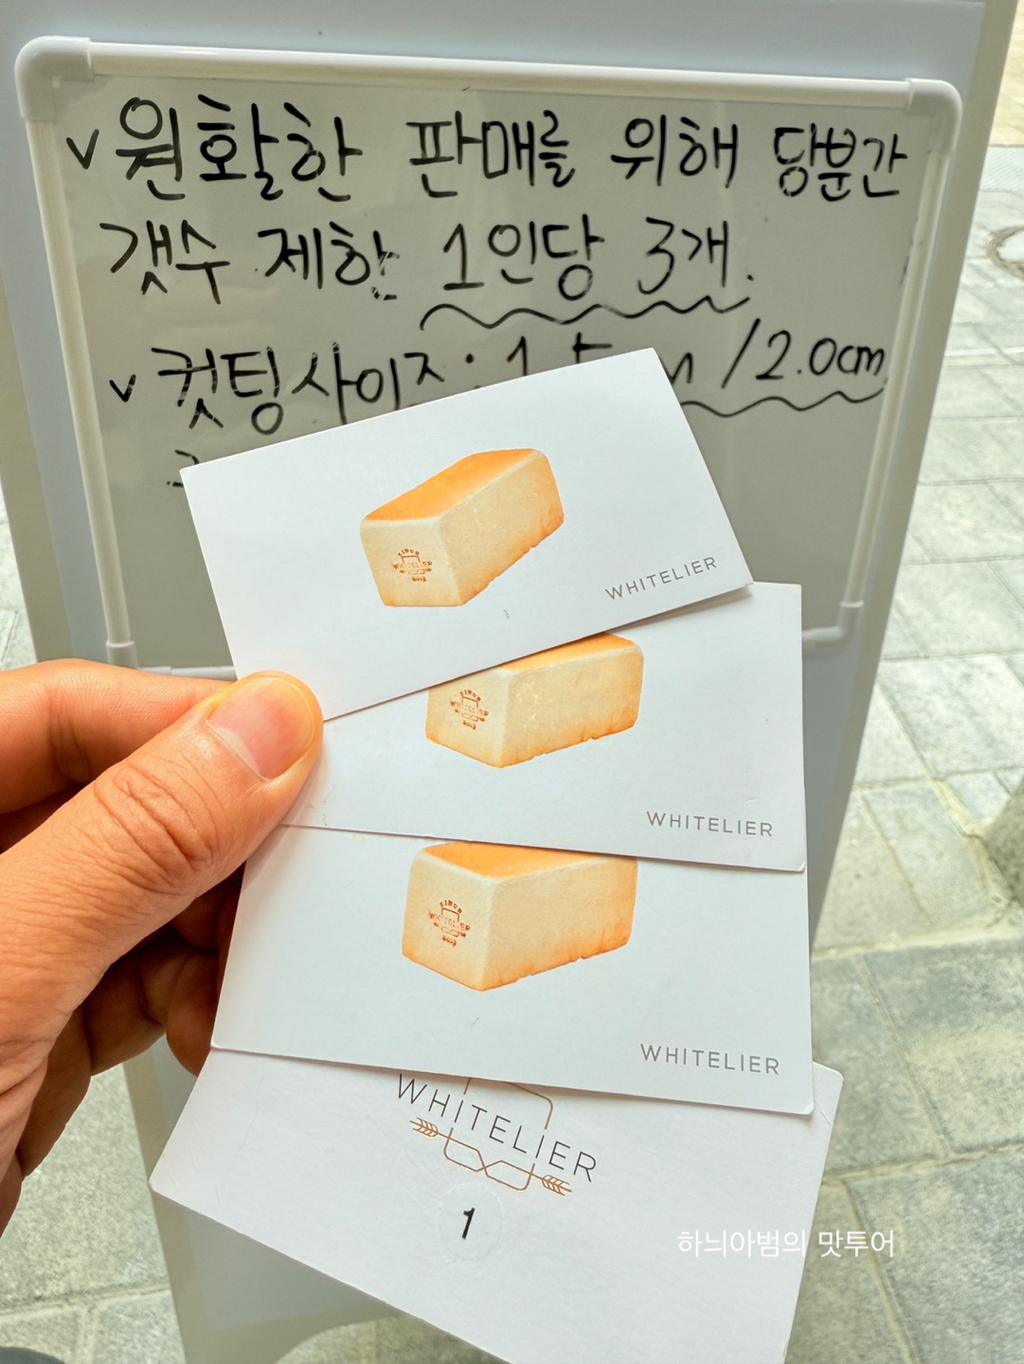 v 원활한 판매를 위해 당분간
갯수 제한 1인당 3개.
v 컷팅사이즈: /2.0cm
WHITELIER
WHITELIER
WHITELIER
WHITELIER
1
하늬아범의 맛투어